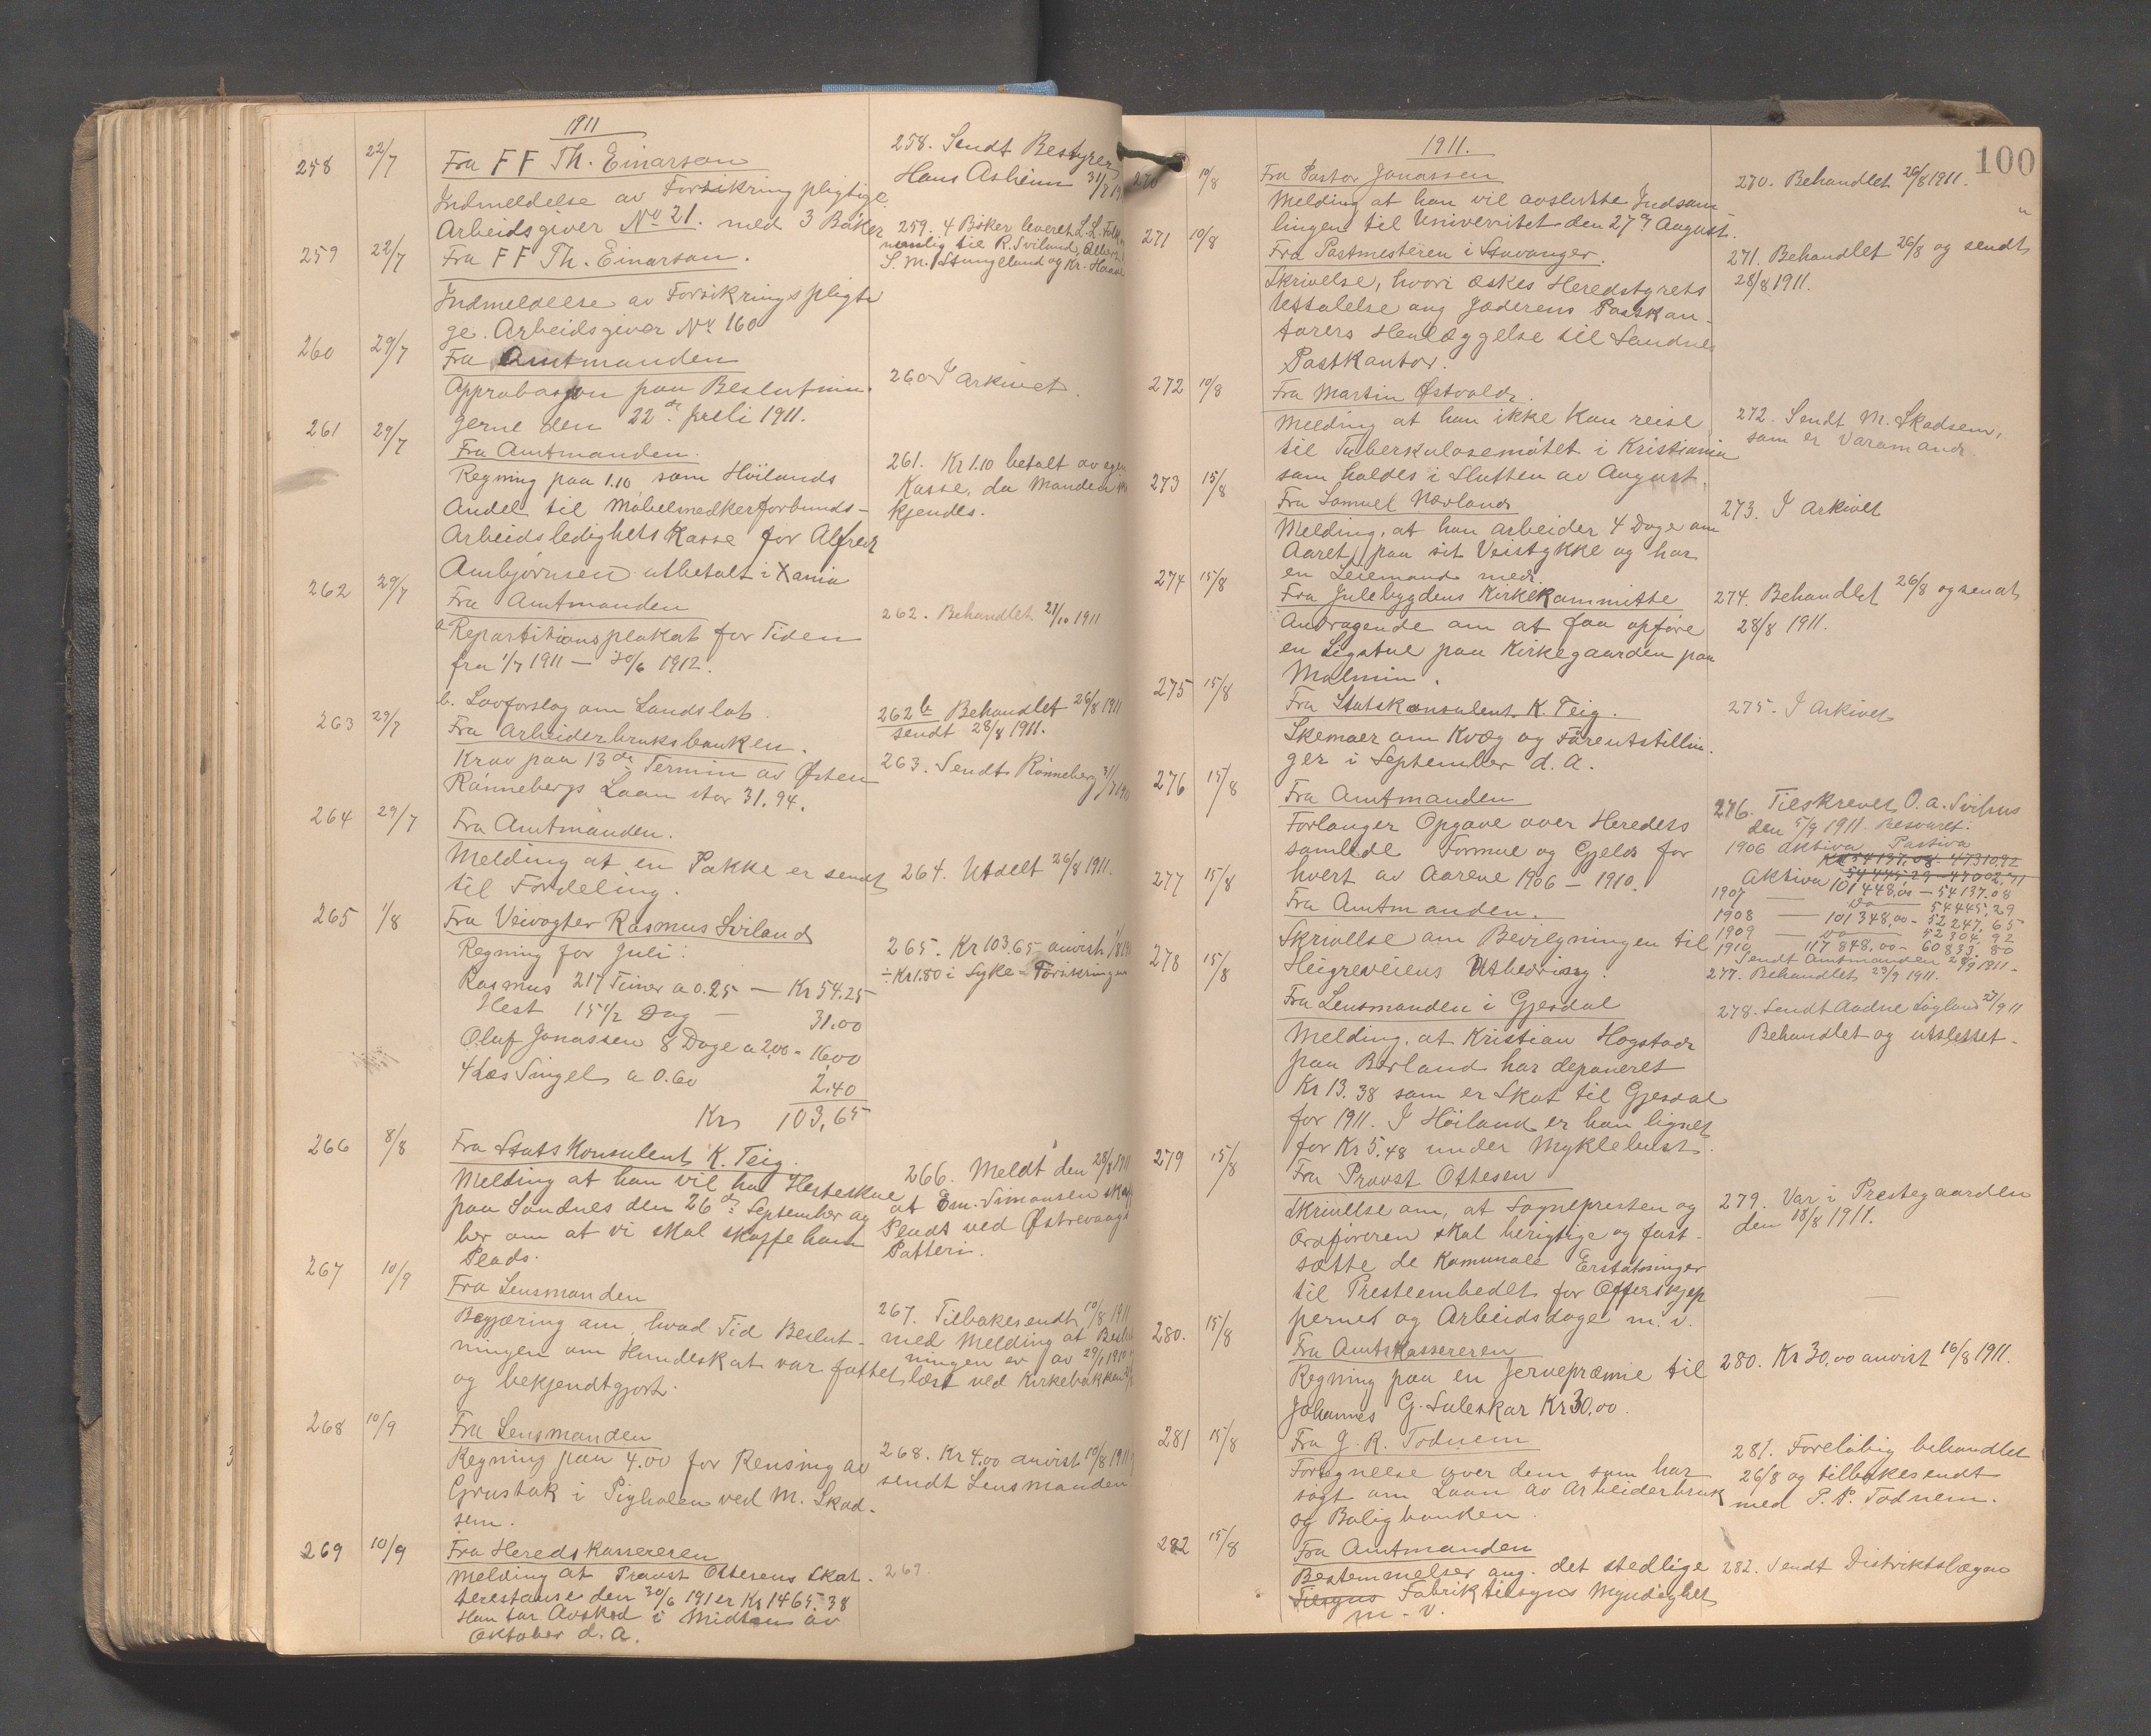 1911
258 22/7 Fra FF Th. Einarson
Indmeldelse av Forsikringspligtige
Arbeidsgiver No 21. med 3 Bøker
258. Sendt Bestyrer
Hans Asheim 31/7
259 22/7 Fra FF Th. Einarson.
Indmeldelse av Forsikringspligti
ge. Arbeidsgiver No 160
259. 4 Bøker leveret L. L.
nemlig til R. Sviland,
S. M. Stangeland og Kr.
260 29/7 Fra Amtmanden
Approbasjon paa Beslutnin.
gerne den 22de Juli 1911.
260 I Arkivet.
261 29/7 Fra Amtmanden.
Regning paa 1.10 som Höilands
Andel til Møbelsnedkerforbunds-
Arbeidsledighets Kasse for Alfred
Ambjørnsen utbetalt i Xania
261. Kr 1.10 betalt av egen
Kasse, da Manden
kjendes.
262 29/7 Fra Amtmanden
a Repartitionsplakat for Tiden
fra 1/7 1911 — 30/6 1912.
b. Lovforslag om Landslot.
262. Behandlet 21/10 1911
262 b Behandlet 26/8 1911
sendt 28/8 1911.
263 29/7 Fra Arbeiderbruksbanken.
Krav paa 13de Termin av Østen
Rønnebergs Laan stor 31.94.
263. Sendt Rønneberg 31/7
264 29/7 Fra Amtmanden.
Melding at en Pakke er sendt
til Fordeling.
264. Utdelt 26/8 1911.
265 1/8 Fra Veivogter Rasmus Sviland
Regning for Juli:
Rasmus 217 Timer a 0.25 — Kr 54.25
Hest 15 1/2 Dag — 31.00
Oluf Jonassen 8 Dage a 2.00 = 16.00
4 Læs Singel a 0.60 2.40
Kr 103,65
265. Kr 103.65 anvist 1/8
÷ Kr 1.80 i Syke-Forsikringen
266 8/8 Fra Statskonsulent K. Teig.
Melding at han vil ha Hesteskue
paa Sandnes den 26de September og
ber om at vi skal skaffe ham
Plads.
266. Meldt den 28/8 1911
at Em. Simonsen skaf
Plads ved Østrevaags
Potteri.
267 10/9 Fra Lensmanden
Begjæring om, hvad Tid Beslut-
ningen om Hundeskat var fattet
og bekjendtgjort.
267. Tilbakesendt 10/8 1911
med Melding at Beslut
ningen er av 29/1 1910
læst ved Kirkebakken
268 10/9 Fra Lensmanden
Regning paa 4.00 for Rensing av
Grustak i Pigholen ved M. Skad-
sem.
268. Kr 4.00 anvist 10/8 1911
sendt Lensmanden
269 10/9 Fra Heredskassereren
Melding at Provst Ottesens Skat-
terestanse den 30/6 191 er Kr 1465.38
Han tar Avsked i Midten av
Oktober d. A.
269.
100
1911.
270 10/8 Fra Pastor Jonassen
Melding at han vil avslutte Indsam
lingen til Universitet den 27de August.
270. Behandlet 26/8 1911.
271 10/8 Fra Postmesteren i Stavanger.
Skrivelse, hvori æskes Heredstyrets
Uttalelse ang Jæderens Postkon-
torers Henlæggelse til Sandnes
Postkontor.
271. Behandlet 26/8 og sendt
28/8 1911.
272 10/8 Fra Martin Østvold.
Melding at han ikke kan reise
til Tuberkulosemøtet i Kristiania
som holdes i Slutten av August.
272. Sendt M. Skadsem,
som er Varamand
273 15/8 Fra Samuel Norland
Melding, at han arbeider 4 Dage om
Aaret, paa sit Veistykke og har
en Leiemand med.
273. I Arkivet
274 15/8 Fra Julebygdens Kirkekommitte
Andragende om at faa opføre
en Ligstue paa Kirkegaarden paa
Malmin.
274. Behandlet 26/8 og sendt
28/8 1911.
275 15/8 Fra Statskonsulent K. Teig.
Skemaer om Kvæg og Fåreutstillin.
ger i September d. A.
275. I Arkivet
276 15/8 Fra Amtmanden
Forlanger Opgave over Heredets
samlede Formue og Gjeld for
hvert av Aarene 1906 — 1910.
276. Tilskrevet O. a. Svihus
den 5/9 1911. Besvaret:
1906 Aktiva Passiva
Kr 54137.08 47310.92
54445.29 - 47002.71
Aktiva 101448,00 — 54137.08
1907 — Do — 54445,29
1908 — 101348,00 - 52247,65
1909 — Do — 52304,92
1910 117848,00 - 60833,80
Sendt Amtmanden 28/9 1911.
277 15/8 Fra Amtmanden.
Skrivelse om Bevilgningen til
Heigreveiens Utbedring.
277. Behandlet 23/9 1911.
278 15/8 Fra Lensmanden i Gjesdal
Melding, at Kristian Hogstad
paa Borland har deponeret
Kr 13.38 som er Skat til Gjesdal
for 1911. I Höiland er han lignet
for Kr 5.48 under Myklebust.
278. Sendt Aadne Lugland 27/9 11
Behandlet og utslettet.
279 15/8 Fra Provst Ottesen
Skrivelse om, at Sognepresten og
Ordføreren skal berigtige og fast-
sætte de Kommunale Erstatninger
til Presteembedet for Offerskjep
pernes og Arbeidsdage m. v.
279. Var i Prestegaarden
den 18/8 1911.
280. 15/8 Fra Amtskassereren
Regning paa en Jervepræmie til
Johannes G. Suleskar Kr 30.00.
280. Kr 30,00 anvist 16/8 1911.
281 15/8 Fra G. R. Todnem
Fortegnelse over dem som har
søgt om Laan av Arbeiderbruk
og Boligbanken.
281. Foreløbig behandlet
26/8 og tilbakesendt
med P. P. Todnem.
282 15/8 Fra Amtmanden
Bestemmelser ang. det stedlige
Tilsyns Fabriktilsyns Myndighet
m. v.
282. Sendt Distriktslægen